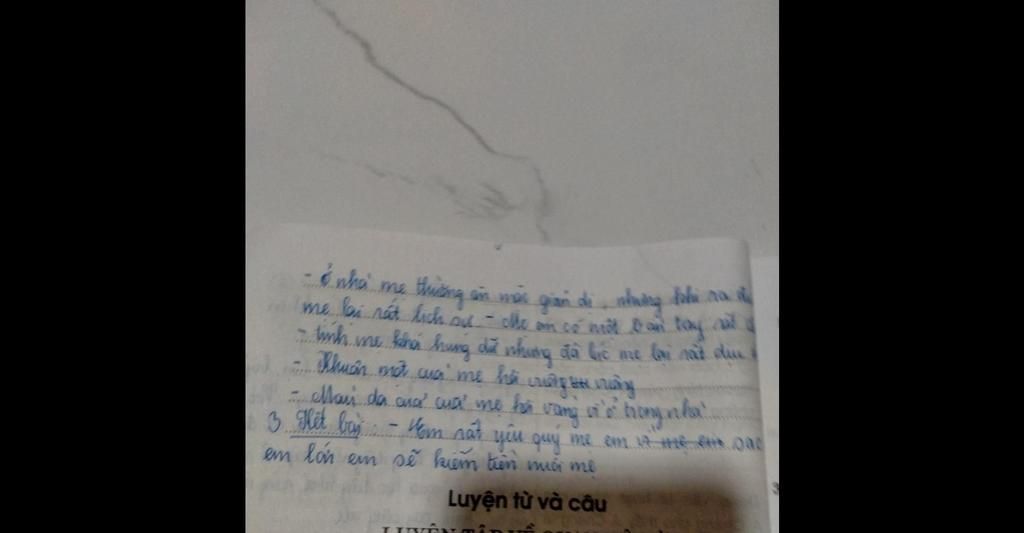 - ở nhà mẹ thường ăn mặc giản dị, nhưng khi ra
mẹ lại rất lịch sự - Mẹ em có một bàn tay rất
- tính mẹ khá hung dữ nhưng đôi lúc mẹ lại rất dịu
- Khuôn mặt của mẹ hơi vuông vuông
- Màu da của của mẹ hơi vàng vì ở trong nhà
3 Kết bài - Em rất yêu quý mẹ em vì mẹ em sau
em lớn em sẽ kiếm tiền nuôi mẹ
Luyện từ và câu